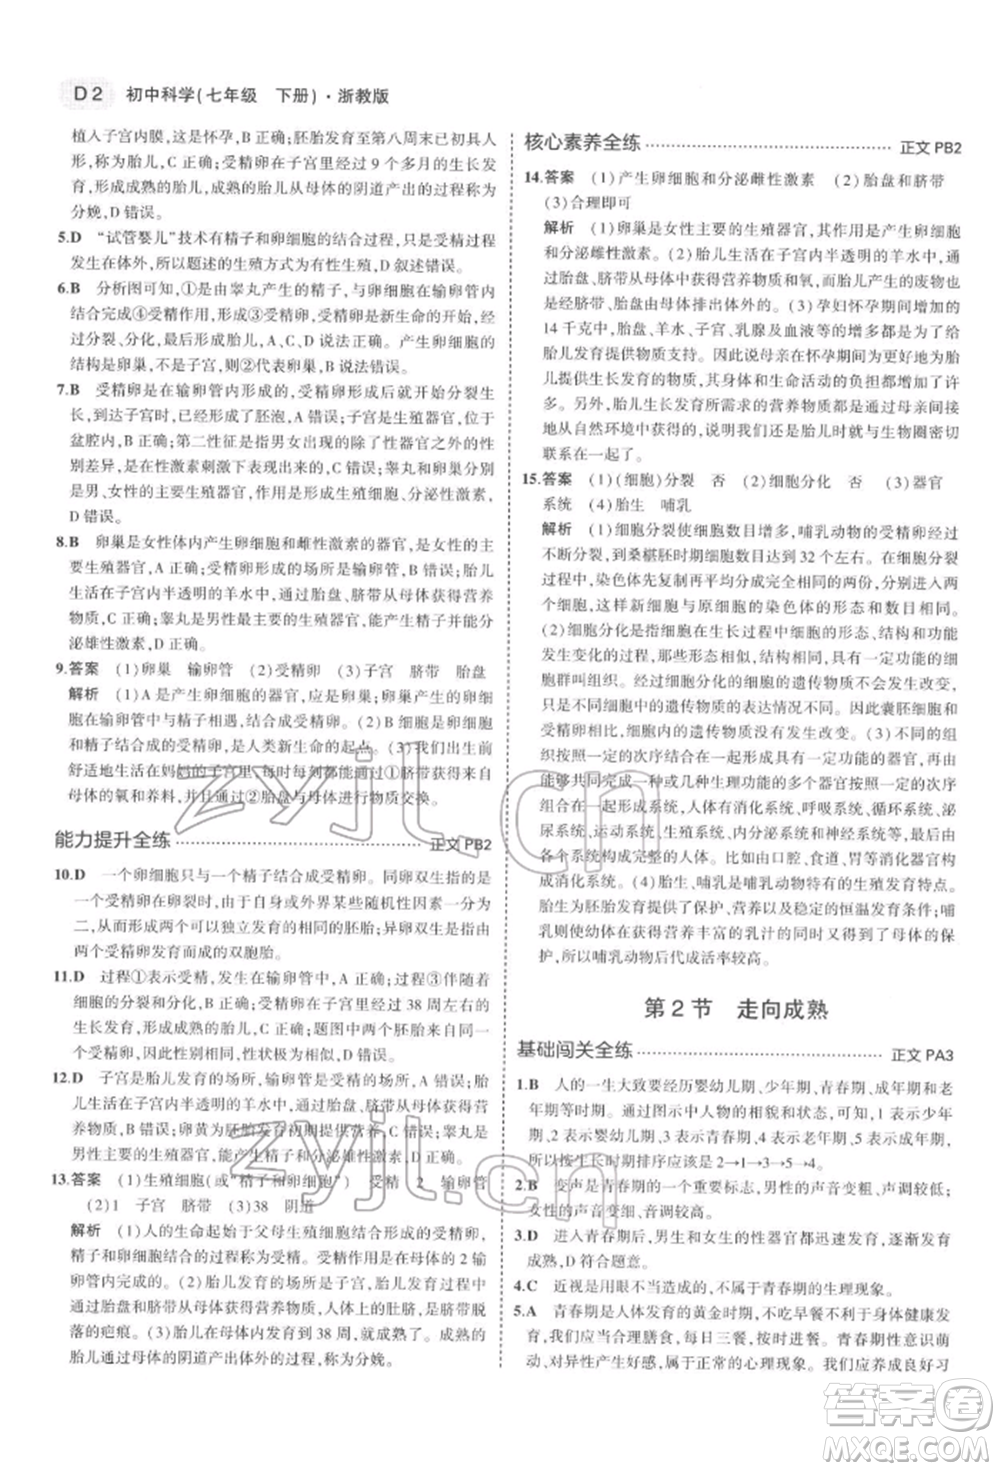 D 2 初中科学(七年级 下册)·浙教版
植入子宫内膜,这是怀孕,B 正确;胚胎发育至第八周末已初具人
形,称为胎儿,C 正确;受精卵在子宫里经过 9 个多月的生长发
育,形成成熟的胎儿,成熟的胎儿从母体的阴道产出的过程称为
分娩,D 错误。
5.D “试管婴儿”技术有精子和卵细胞的结合过程,只是受精过程
发生在体外,所以题述的生殖方式为有性生殖,D 叙述错误。
6.B 分析图可知,①是由睾丸产生的精子,与卵细胞在输卵管内
结合完成④受精作用,形成③受精卵,受精卵是新生命的开始,经
分裂、分化,最终形成胎儿,A、C、D 说法正确。产生卵细胞的
结构是卵巢,不是子宫,则②代表卵巢,B 说法错误。
7.B 受精卵是在输卵管内形成的,受精卵形成后即开始分裂生
长,到达子宫时,已经形成了胚泡,A 错误;子宫是生殖器官,位于
盆腔内,B 正确;第二性征是指男女出现的除了性器官之外的性
别差异,是在性激素刺激下出现的,C 错误;睾丸和卵巢分别是
男、女性的主要生殖器官,能分别形成生殖细胞,分泌性激素,
D 错误。
8.B 卵巢是女性体内产生卵细胞和雌性激素的器官,是女性的主
要性器官,A 正确;形成受精卵的场所是输卵管,B 错误;胎儿生
活在子宫内半透明的羊水中,通过胎盘、脐带从母体获得营养
物质,C 正确;睾丸是男性的主要性器官,能产生精子并能分
泌雄性激素,D 正确。
9.答案 (1)卵巢 输卵管 (2)受精卵 (3)子宫 脐带 胎盘
解析 (1)A 是产生卵细胞的器官,应是卵巢;卵巢产生的卵细
胞,在输卵管中与精子相遇,结合成受精卵。(2)B 是由卵细胞
和精子相结合形成的受精卵,是新生命的起点。(3)我们出生前
舒适地生活在妈妈的子宫里,时时刻刻都能通过脐带获得来自
母体的氧和养料,并且通过胎盘与母体进行物质交换。
能力提升全练 正文 PB2
10.D 一个卵细胞只与一个精子结合形成受精卵。同卵双生是指的是
一个受精卵在卵裂时,由于自身或外界某些随机性因素一分为
二,从而形成两个可以独立发育的小胚胎;异卵双生是指由
两个受精卵发育而成的双胞胎。
11.D 过程①表示受精,发生在输卵管中,A 正确;过程③伴随着
细胞的分裂和分化,B 正确;受精卵在子宫里经过 38 周左右的
生长发育,形成成熟的胎儿,C 正确;图中两个胚胎由两个
受精卵形成,是异卵双胞胎,D 错误。
12.D 子宫是胎儿发育的场所,输卵管是受精的场所,A 错误;胎
儿生活在子宫内半透明的羊水中,通过胎盘、脐带从母体获得
营养物质,B 错误;卵黄为胚胎早期发育提供营养,C 错误。
13.答案 (1)生殖细胞(或“精子和卵细胞”) 受精 2 输卵管
(2)1 子宫 脐带 (3)38 阴道
解析 (1)人的生命起始于父母生殖细胞结合形成的受精卵,
精子和卵细胞结合的过程称为受精。受精作用是在母体的 2 输
卵管内完成的。(2)胎儿发育的场所是子宫,胎儿发育过程中
通过胎盘和脐带从母体获得营养物质,人体上的肚脐,就是脐带脱
落的疤痕。(3)胎儿发育到 38 周时,就成熟了。成熟的
胎儿通过母体的阴道产出体外的过程,称为分娩。
核心素养全练 正文 PB2
14.答案 (1)产生卵细胞和分泌雌性激素 (2)胎盘和脐带
(3)合理即可
解析 (1)卵巢是女性主要的生殖器官,其作用是产生卵细胞
和分泌雌性激素。(2)胎儿生活在子宫内半透明的羊水中,通
过胎盘、脐带从母体获得营养物质和氧,胎儿产生的废物也
是经脐带、胎盘由母体排出体外的。(3)孕妇怀孕期间增加的
14 千克中,胎盘、羊水、子宫、乳腺及血液等的增多都是为了给
胎儿发育提供物质支持。因此说母亲在怀孕期间为胎儿的
发育提供了物质,其身体和生命活动的负担都增大了许
多。另外,胎儿生长发育所需求的营养物质都通过母亲间接
地从自然环境中获得,母亲怀孕时,胎儿就与生物圈密切
联系在一起了。
15.答案 (1)细胞分裂 否 (2)细胞分化 否 (3)器官
系统 (4)胎生 哺乳
解析 (1)细胞分裂使细胞数目增多,哺乳动物的受精卵经过
不断分裂,到桑椹胚时期细胞数目达到 32 个左右。在细胞分裂
过程中,染色体先复制再平均分成完全相同的两份,分别进入两个
新细胞,这样新细胞与原细胞的染色体的形态和数目相同。
(2)细胞分化是指细胞在生长过程中细胞的形态、结构和功能
发生变化的过程。这些形态相似,结构、功能相同的
细胞群叫组织。细胞分化的细胞的遗传物质没有发生改变,
只是不同细胞的遗传物质的表达情况不同。因此囊胚细胞与原
肠胚细胞的遗传物质没有发生改变。(3)不同的
组织按一定的次序结合在一起构成具有一定功能的器官;
能够共同完成一种或几种生理功能的多个器官按照一定的次
序组合在一起形成系统,人体有消化系统、呼吸系统、循环系统、泌
尿系统、运动系统、生殖系统、内分泌系统和神经系统,由这八大
系统构成完整的人体。如由口腔、食道、胃等消化器官构
成消化系统。(4)胎生、哺乳是哺乳动物的生殖发育特点。
胎生为胚胎发育提供了保护、营养以及稳定的恒温发育条件;哺
乳则使幼体获得营养丰富的乳汁的同时得到了母体的保护,
所以哺乳动物后代成活率较高。
第 2 节 走向成熟
基础闯关全练 正文 PA3
1.B 人的一生大致要经历婴幼儿期,少年期,青春期,成年期和老
年期等时期。图示中人物的相貌和状态,1 表示少年
期、2 表示婴幼儿期、3 表示青春期、4 表示老年期、5 表示成
年期。所以按出生时期排序应该是 2→1→3→5→4。
2.B 变声是青春期的一个重要标志,男性的声音变粗、声调较低;
女性的声音变细、音调较高。
3.D 进入青春期,男生和女生的性器官都迅速发育,逐渐发育
成熟,D 符合题意。
4.C 近视是用眼不当造成的,不属于青春期的生理现象。
5.A 青春期是人体发育的黄金时期,不吃早餐不利于身体健康发
育,我们应合理膳食,每日三餐,按时就餐。青春期性意识萌
动,对异性产生好感,属于正常的心理现象。我们应养成良好习
zyjl.cn
zyjl.cn
作业精灵
MXQE.COM